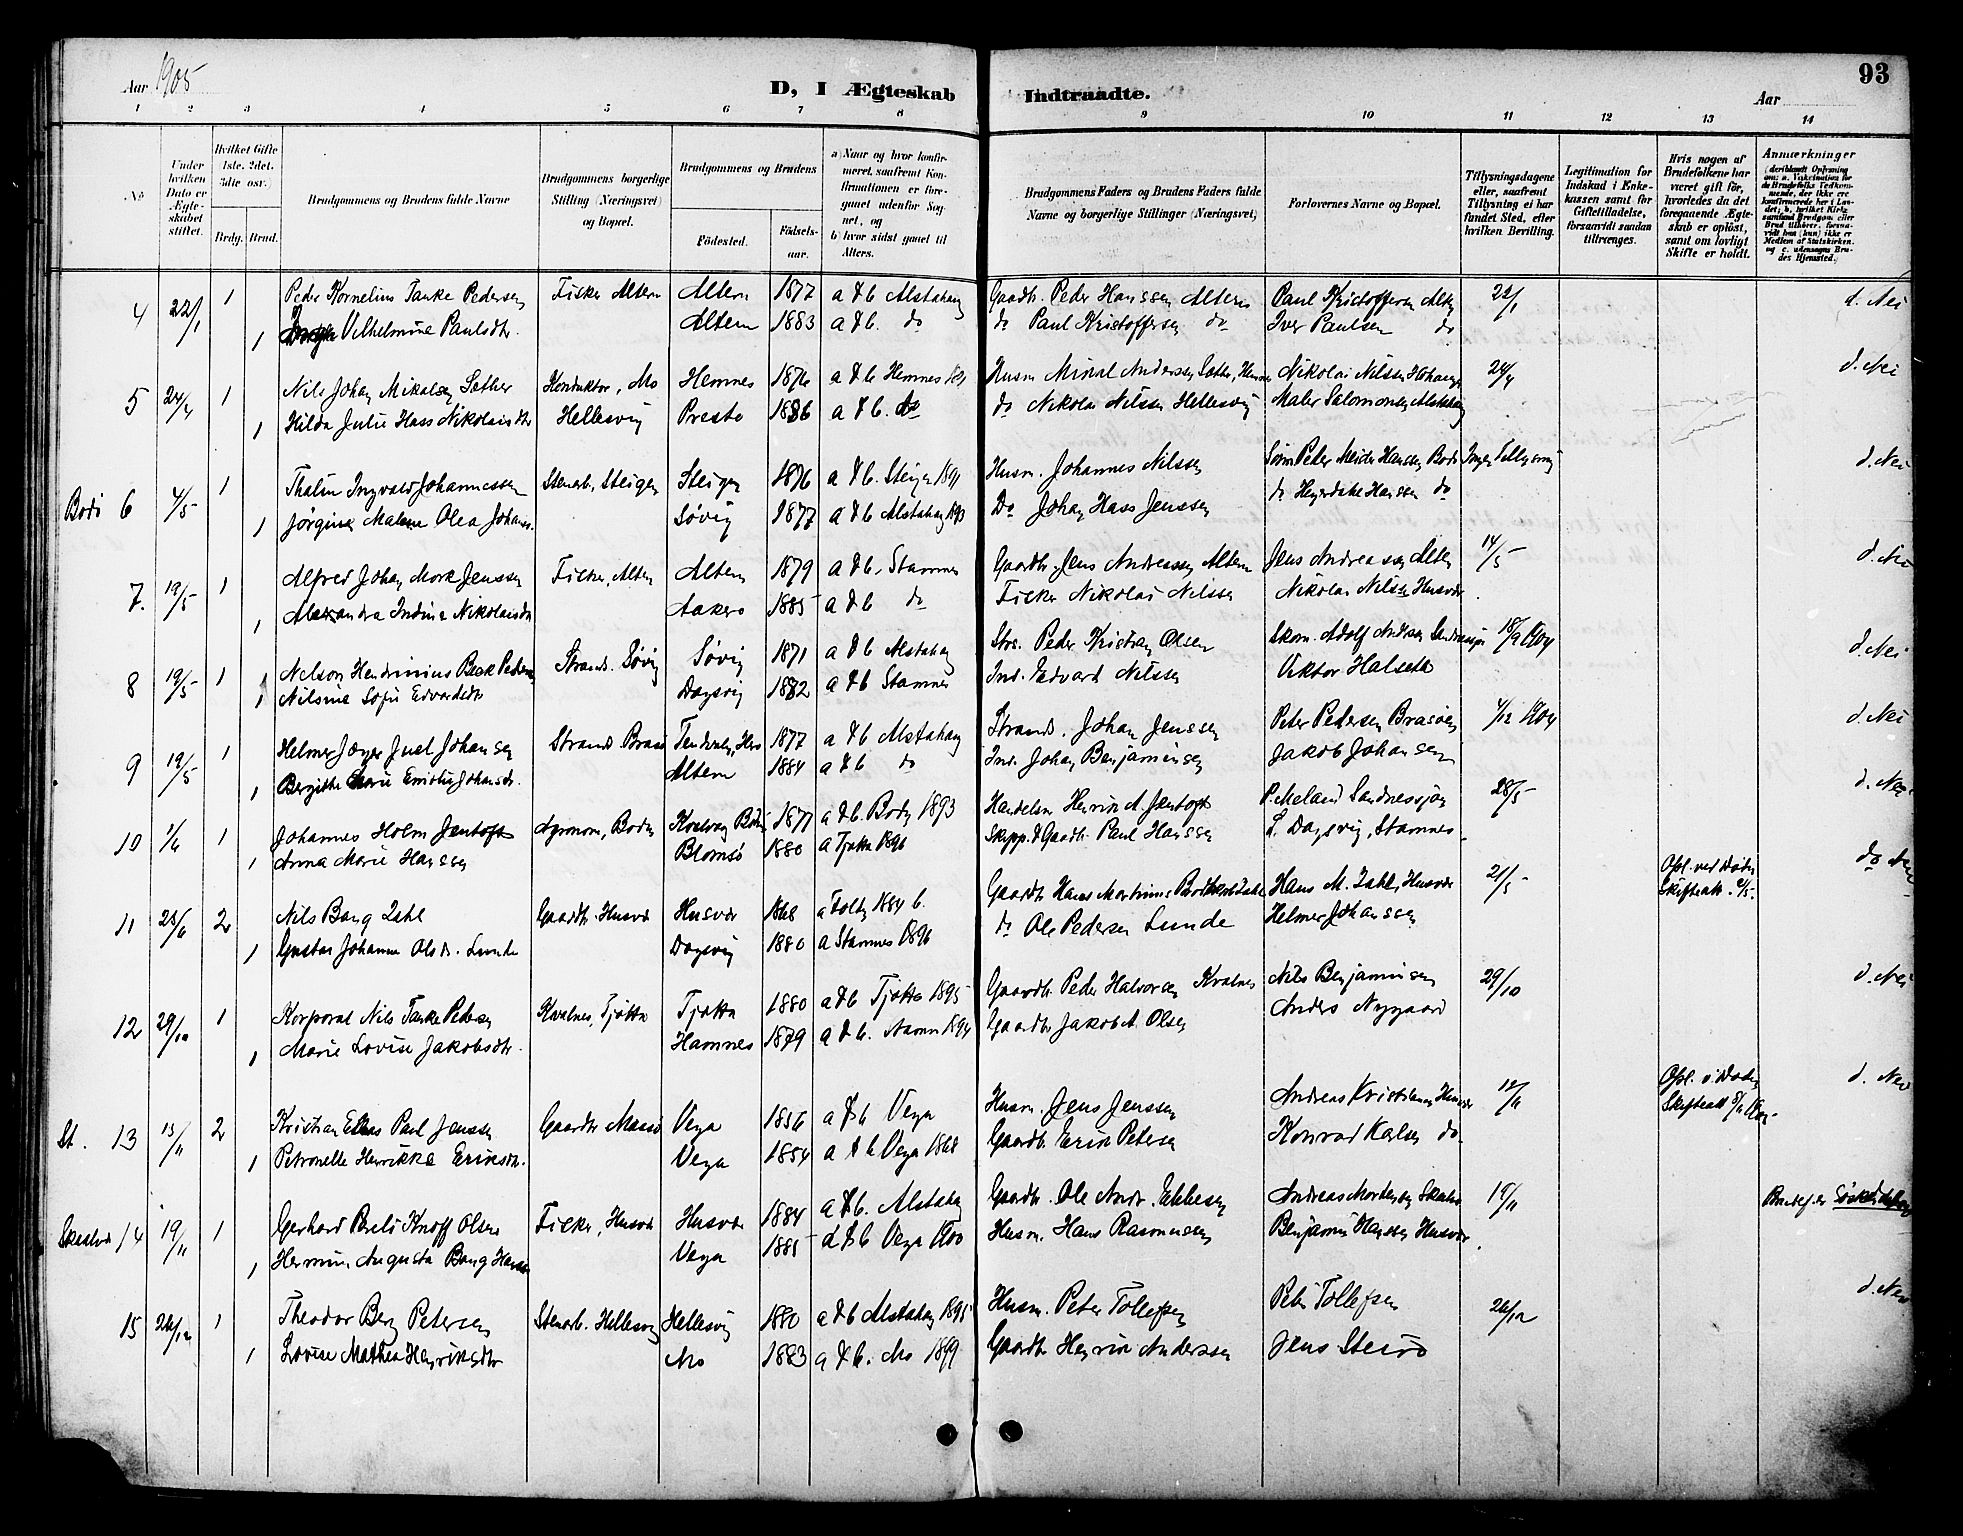 Aar 1905
D, I Ægteskab Indtraadte.
93
Aar
1 2 3 4 5 6 7 8 9 10 11 12 13 14
No
Under hvilken Dato er Ægteskabet stiftet.
Hvilket Gifte 1ste. 2det. 3die osv.
Brdg. Brud.
Brudgommens og Brudens fulde Navne
Brudgommens borgerlige Stilling (Næringsvei) og Bopæl.
Brudgommens og Brudens
Födested.
Födselsaar.
a) Naar og hvor konfirmeret, saafremt Konfirmationen er foregaaet udenfor Sognet, og
b) hvor sidst gaaet til Alters.
Brudgommens Faders og Brudens Faders fulde Navne og borgerlige Stillinger (Næringsvei)
Forlovernes Navne og Bopæl.
Tillysningsdagene eller, saafremt Tillysning ei har fundet Sted, efter hvilken Bevilling.
Legitimation for Indskud i Enkekassen samt for Giftetilladelse, forsaavidt saadan tiltrænges.
Hvis nogen af Brudefolkene har været gift för, hvorledes da det foregaaende Ægteskab er oplöst, samt om lovligt Skifte er holdt.
Anmærkninger
4 22/1 1 Peder Kornelius Tanke Pedersen Fisker Altern Altern 1877 a & b Alstahaug Gaardb. Peder Hanssen Altern Paul Kristoffersen Altern 22/1 d. Nei
1 Vilhelmine Paulsdtr. Altern 1883 a & b. do do Paul Kristoffersen do Iver Paulsen do
5 24/4 1 Nils Johan Mikalsen Sether Konduktør, Mo Hemnes 1876 a & b Hemnes Husm Mikal Anderssen Nikolai Nilssen 24/4 d. Nei
1 Hilda Julie Hass Nikolaisdtr Hellesvig Presto 1886 a & b. do do Nikolai Nilssen Hellesvig Maler Salomonsen Alstahaug
Bodö 6 4/5 1 Thalin Ingvald Johannessen Stenarb, Steigen Steigen 1876 a & b. Steigen 1891 Husm. Johannes Nilssen Peder Meider Hanssen Bodö Ingen Tillysning d. Nei
1 Jörgine Malene Olea Johans. Søvig 1877 a & b Alstahaug Do Johan Hass Jenssen do Heyerdahl Hanssen do
7. 19/5 1 Alfred Johan Mork Jenssen Fisker, Altern Altern 1879 a & b, Stamnes Gaardb. Jens Andreassen Altern Jens Andreassen Altern 14/5 d. Nei
1 Alexandra Indine Nikolaisdtr Aakero 1885 a & b do Fisker Nikolai Nilssen Nikolai Nilssen Husvær
8 19/5 1 Nelson Hendrinius Beck Peders Strands. Søvig Søvig 1871 a & b Alstahaug Strs. Peder Kristian Olsen Skom. Adolf Andersen Sandnessjøn 18/9 1904 d. Nei
1 Nilsine Sofie Edvardsdtr Dagsvig 1882 a & b Stamnes Ind. Edvard Nilssen Viktor Halseth
9 19/5 1 Helmer Jæger Juel Johansen Strands Brasø 1877 a & b Alstahaug Strands. Johan Jenssen Peter Pedersen Brasøen 4/12 1904 d. Nei
1 Bergithe Marie Emilie Johansdtr. Altern 1884 a & b do Ind. Johan Benjaminsen Jakob Johansen
10 1/6 1 Johannes Holm Jentoft Agronom, Bodin Kvalvag Bodin 1877 a & b. Bodin 1893 Handelsm Henrik A. Jentoft P. Meland Sandnessjøn 28/5 d. Nei
1 Anna Marie Hanssen Blomsø 1880 a Tjøtta 1896 Skipp. & Gaardb. Paul Hanssen L. Dagsvig, Stamnes
11 23/6 2 Nils Bang Zahl Gaardb. Husvær Husvær 1868 a 1884 b. Gaardb Hans Mortinus Zahl Hans M. Zahl, Husvær 21/5 Opl. ved Döden do Nei
1 Gustava Johanna Olsdr. Lunde Dagsvig 1880 a Stamnes 1896 do Ole Pedersen Lunde Helmer Johanssen Skifteatt. 9/5.
12 29/10 1 Korporal Nils Tanke Pedersen Kvalnes, Tjøtta Tjøtta 1880 a & b Tjøtta 1895 Gaardb. Peder Halvorsen Kvalnes Nils Benjaminsen 29/10 d. Nei
1 Marie Lovise Jakobsdtr. Hamnes 1879 a & b. Stamn 1894 Gaardb Jakob A. Olsen Anders Nygaard
St. 13 13/11 2 Kristian Elias Paul Jenssen Gaardb Vega 1856 a & b Vega Husm. Jens Jenssen Andreas Kristiansen Husvær 12/11 Opl. v. Döden d. Nei
1 Petronelle Henrikke Eriksdtr. Vega 1854 a & b Vega 1868 Gaardb. Erik Petersen Konrad Karlsen do Skifteatt 9/11
14 19/11 1 Gerhard Knoff Olsen Fisker, Husvær Husvær 1884 a & b. Alstahaug Gaardb. Ole Andr. Ebbesen Andreas Mortensen 19/11 Brudef. er Søskendebørn
1 Hermine Augusta Bang Hansdtr Vega 1885 a & b Vega 1900 Husm. Hans Rasmussen Benjamin Hanssen Husvær.
15 26/12 1 Theodor Berg Petersen Stenarb. Hellesvig Hellesvig 1880 a & b Alstahaug 1895 Husm. Peter Tollefsen Peter Tollefsen 26/12 d. Nei
1 Lovise Mathea Henriksdtr Mo 1883 a & b. Mo 1899 Gaardb Henrik Anderssen Jens Steirø